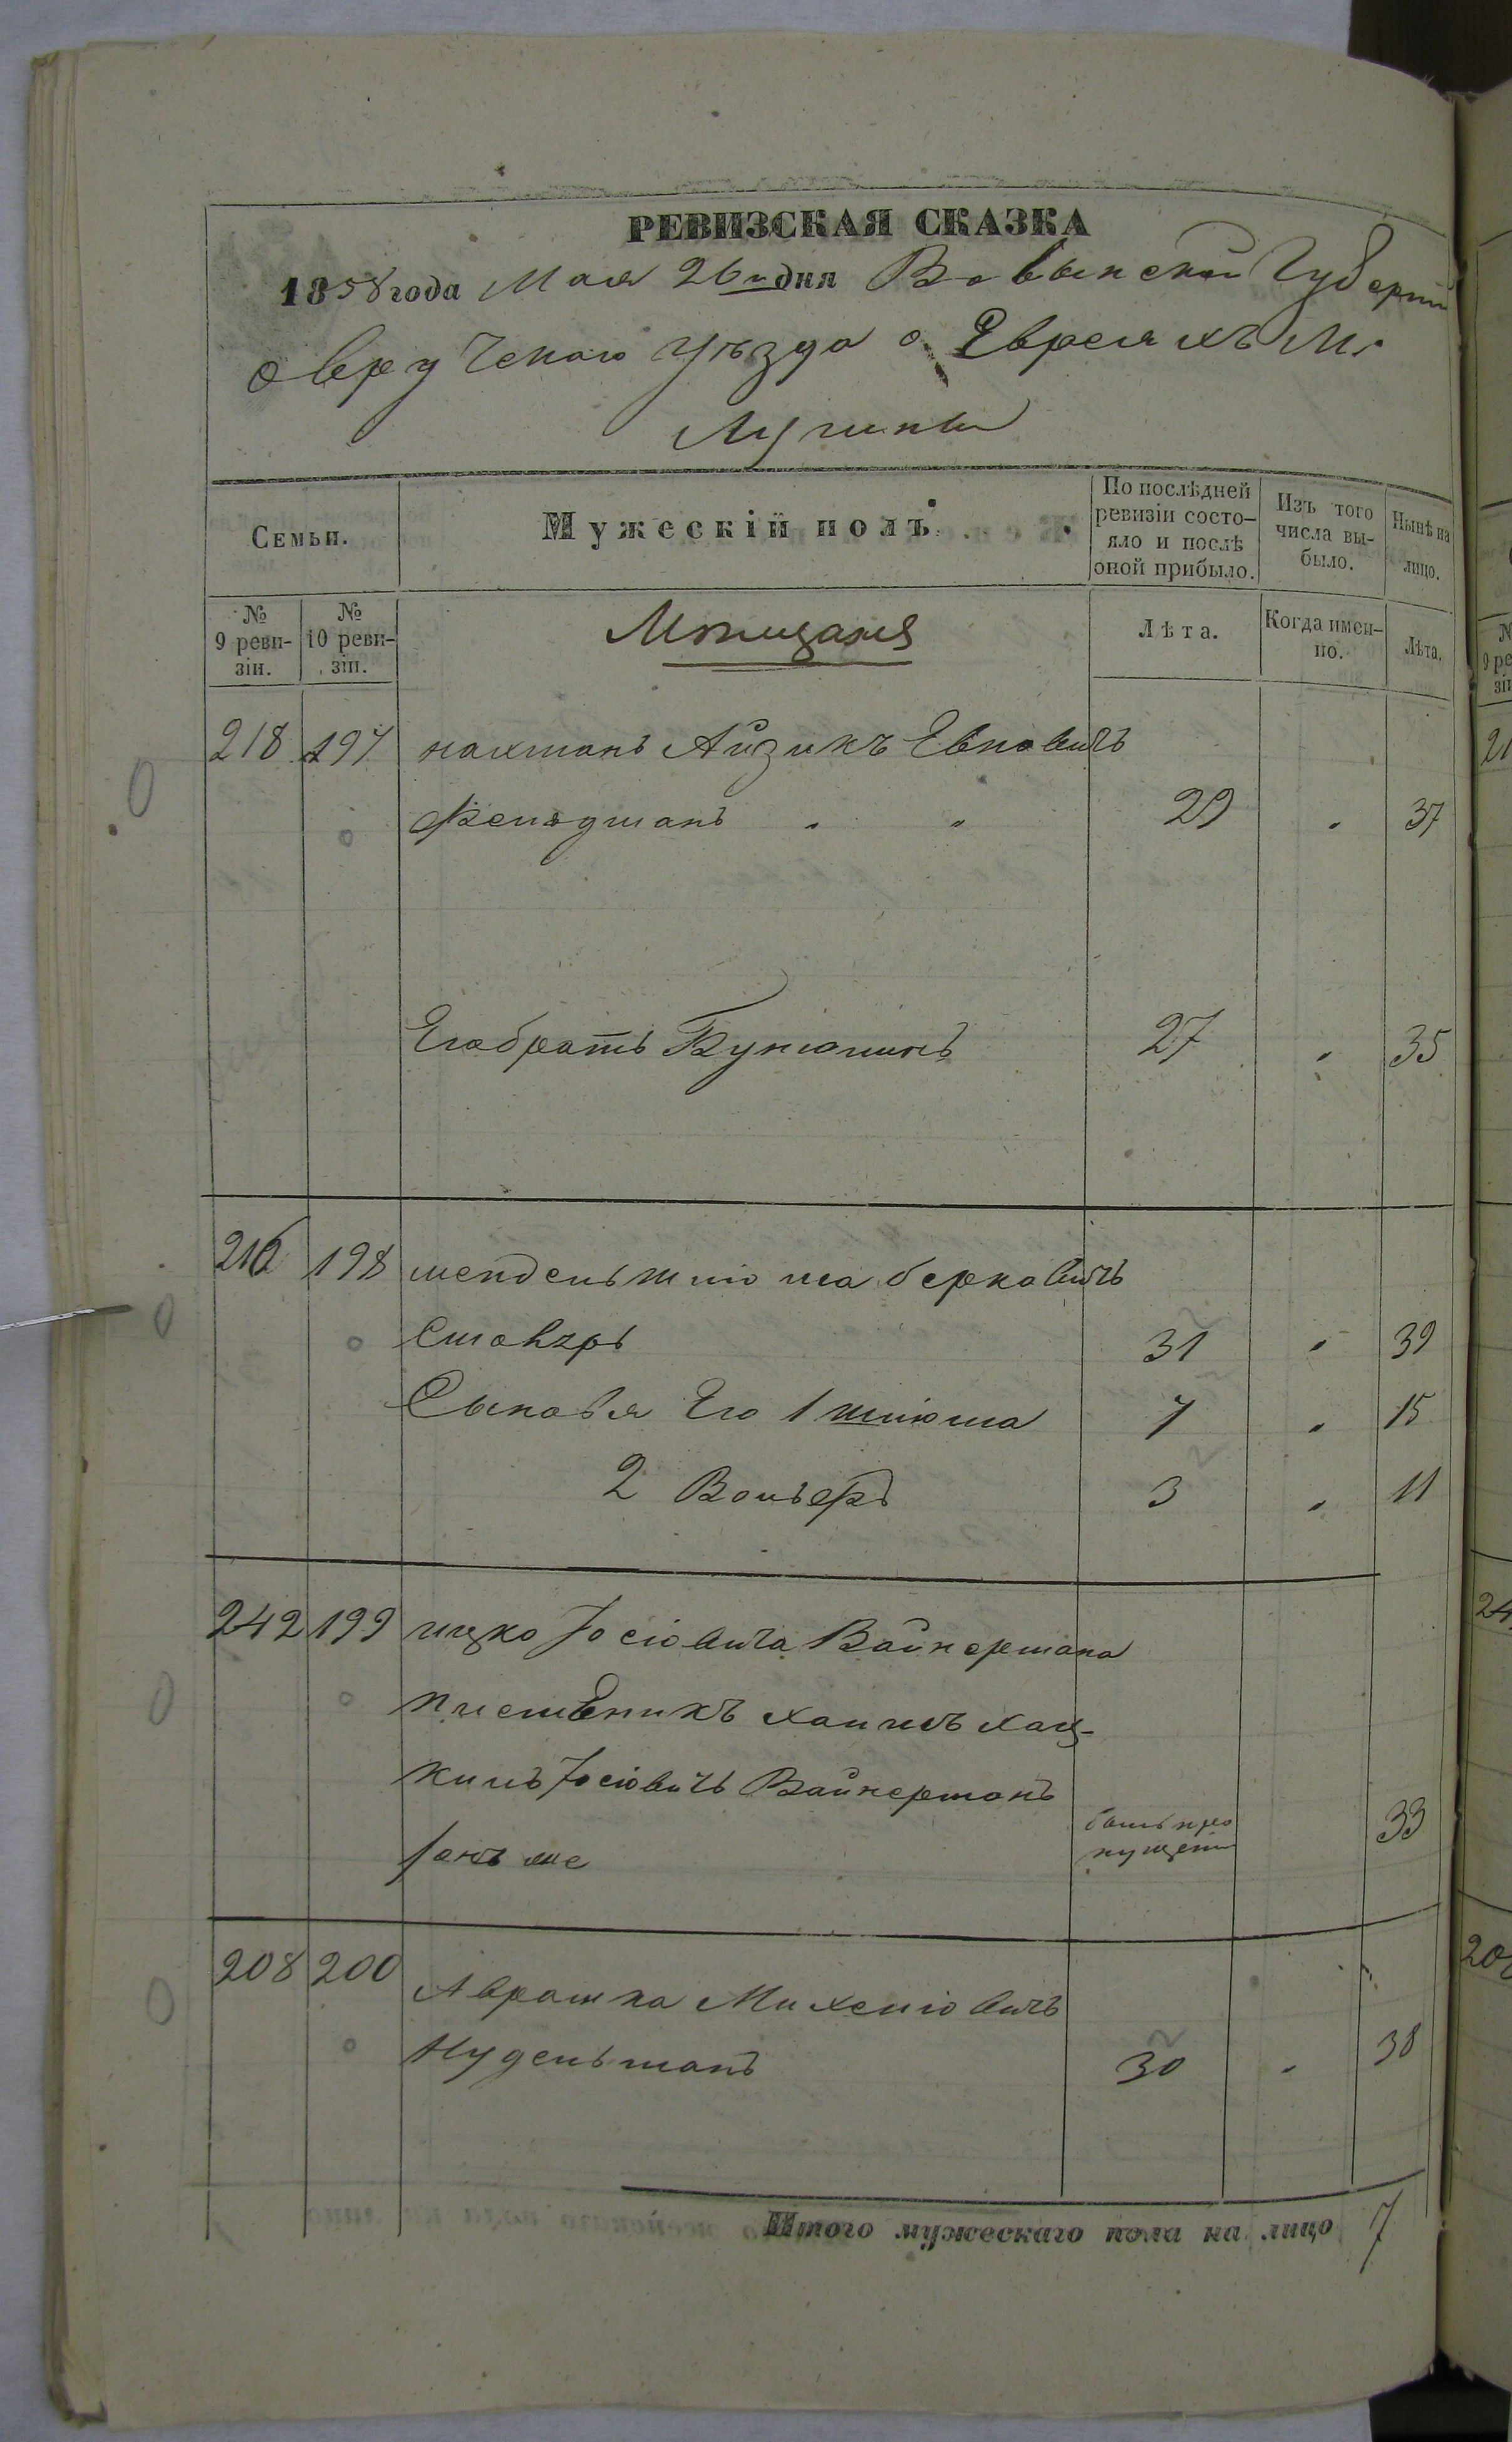 РЕВИЗСКАЯ СКАЗКА
1858 года Мая 26 дня Волынской Губерніи
Овручскаго уѣзда о Евреяхъ М.
Лугинъ
Семьи.
Мужескій полъ.
По послѣдней ревизіи состо-
яло и послѣ
оной прибыло.
Изъ того
числа вы-
было.
Нынѣ на
лицо.
№
9 реви-
зіи.
№
10 реви-
зіи.
Мѣщане
Лѣта.
Когда имен-
но.
Лѣта.
218 197 Нахманъ Айзикъ Евновичъ
Фельдманъ " " 29 " 37
Его братъ Буніоминъ 27 " 35
216 198 Мендель Шліома Берковичъ
Столяръ 31 " 39
Сыновья Его 1 Шліома 7 " 15
2 Вольфъ 3 " 11
242 199 Ицко Іосіовича Вайнермана
племеникъ Хаимъ Хац-
киль Іосіовичъ Вайнерманъ
онъ же былъ про
пущенъ 33
208 200 Аврашка Михеліовичъ
Нудельманъ 30 " 38
Итого мужескаго пола на лицо 7